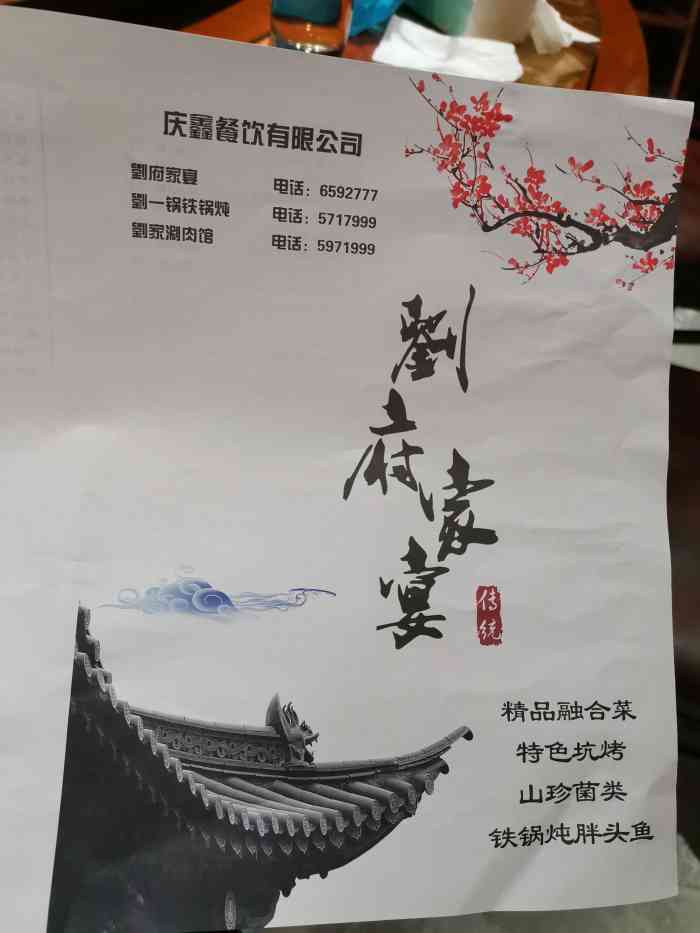 庆鑫餐饮有限公司
劉府家宴 电话：6592777
劉一锅铁锅炖 电话：5717999
劉家涮肉馆 电话：5971999
劉府家宴
传统
精品融合菜
特色坑烤
山珍菌类
铁锅炖胖头鱼